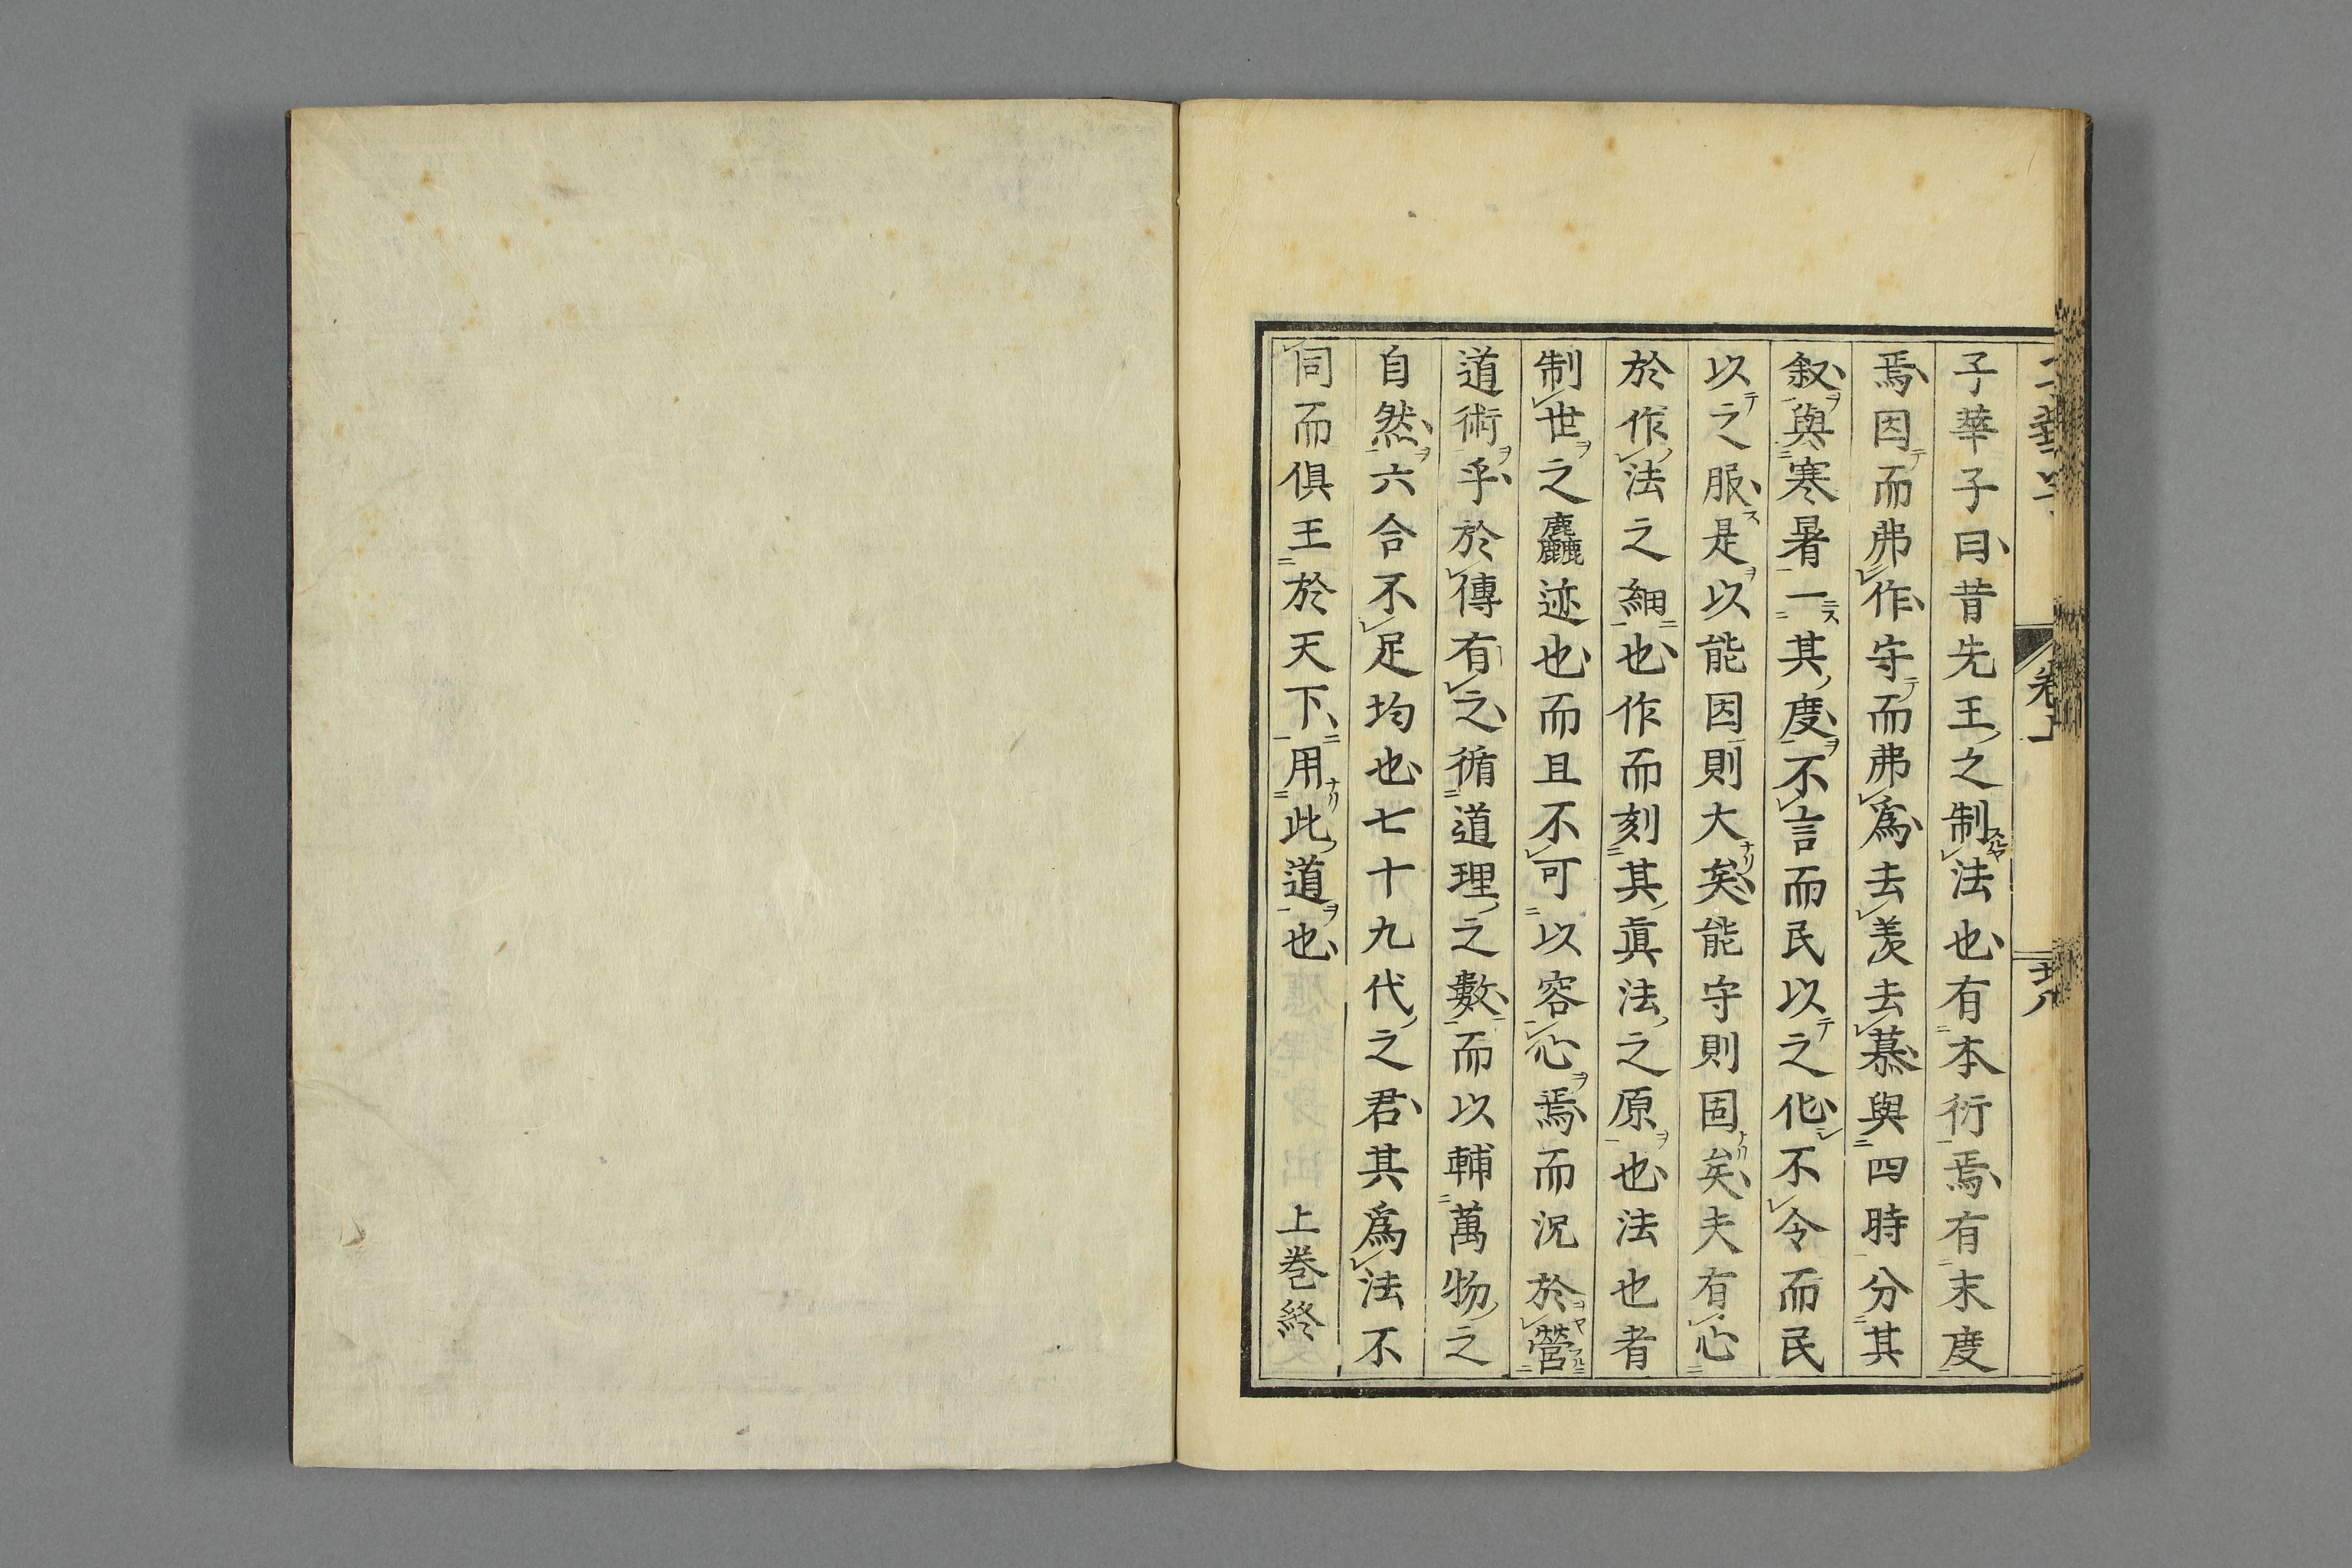 子華子曰昔先王之制法也有本衍焉有末度
焉因而弗作守而弗爲去羨去慕與四時分其
叙與寒暑一其度不言而民以之化不令而民
以之服是以能因則大矣能守則固矣夫有心
於作法之細也作而刻其眞法之原也法也者
制世之麤迹也而且不可以容心焉而況於營
道術乎於傳有之循道理之數而以輔萬物之
自然六合不足均也七十九代之君其爲法不
同而俱王於天下用此道也 上卷終